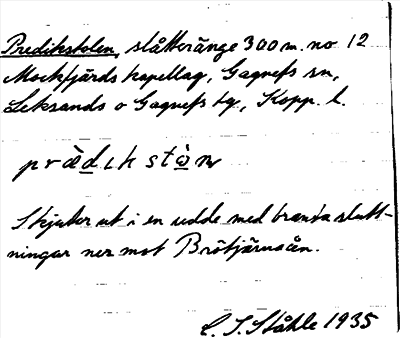 Predikstolen, slåtteränge 300 m. no 12
Mockfjärds kapellag, Gagnefs sn,
Leksands o Gagnefs tg., Kopp. l.
prǣdıkstòn
Skjuter ut i en udde med branta slutt-
ningar ner mot Brötjärnaån.
C. I. Ståhle 1935